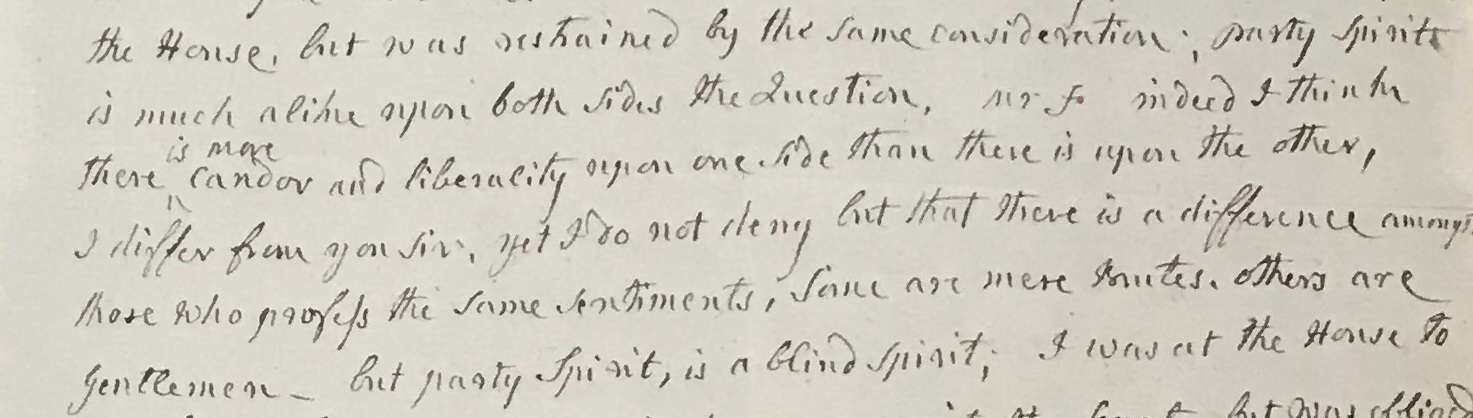 the House, but was restrained by the same consideration; party spirit
is much alike upon both sides the Question, mr f. indeed I think
is more
there candor and liberality upon one side than there is upon the other,
I differ from you sir, yet I do not deny but that there is a difference amongst
those who profess the same sentiments, some are mere Brutes. others are
Gentlemen – but party Spirit, is a blind spirit; I was at the House to
but was